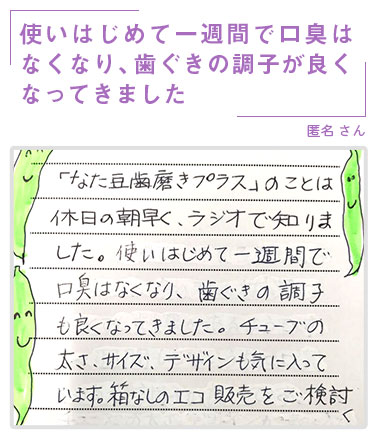 使いはじめて一週間で口臭は
なくなり、歯ぐきの調子が良く
なってきました
匿名 さん
「なた豆歯磨きプラス」のことは
休日の朝早く、ラジオで知りま
した。使いはじめて一週間で
口臭はなくなり、歯ぐきの調子
も良くなってきました。チューブの
太さ、サイズ、デザインも気に入って
います。箱なしのエコ販売をご検討